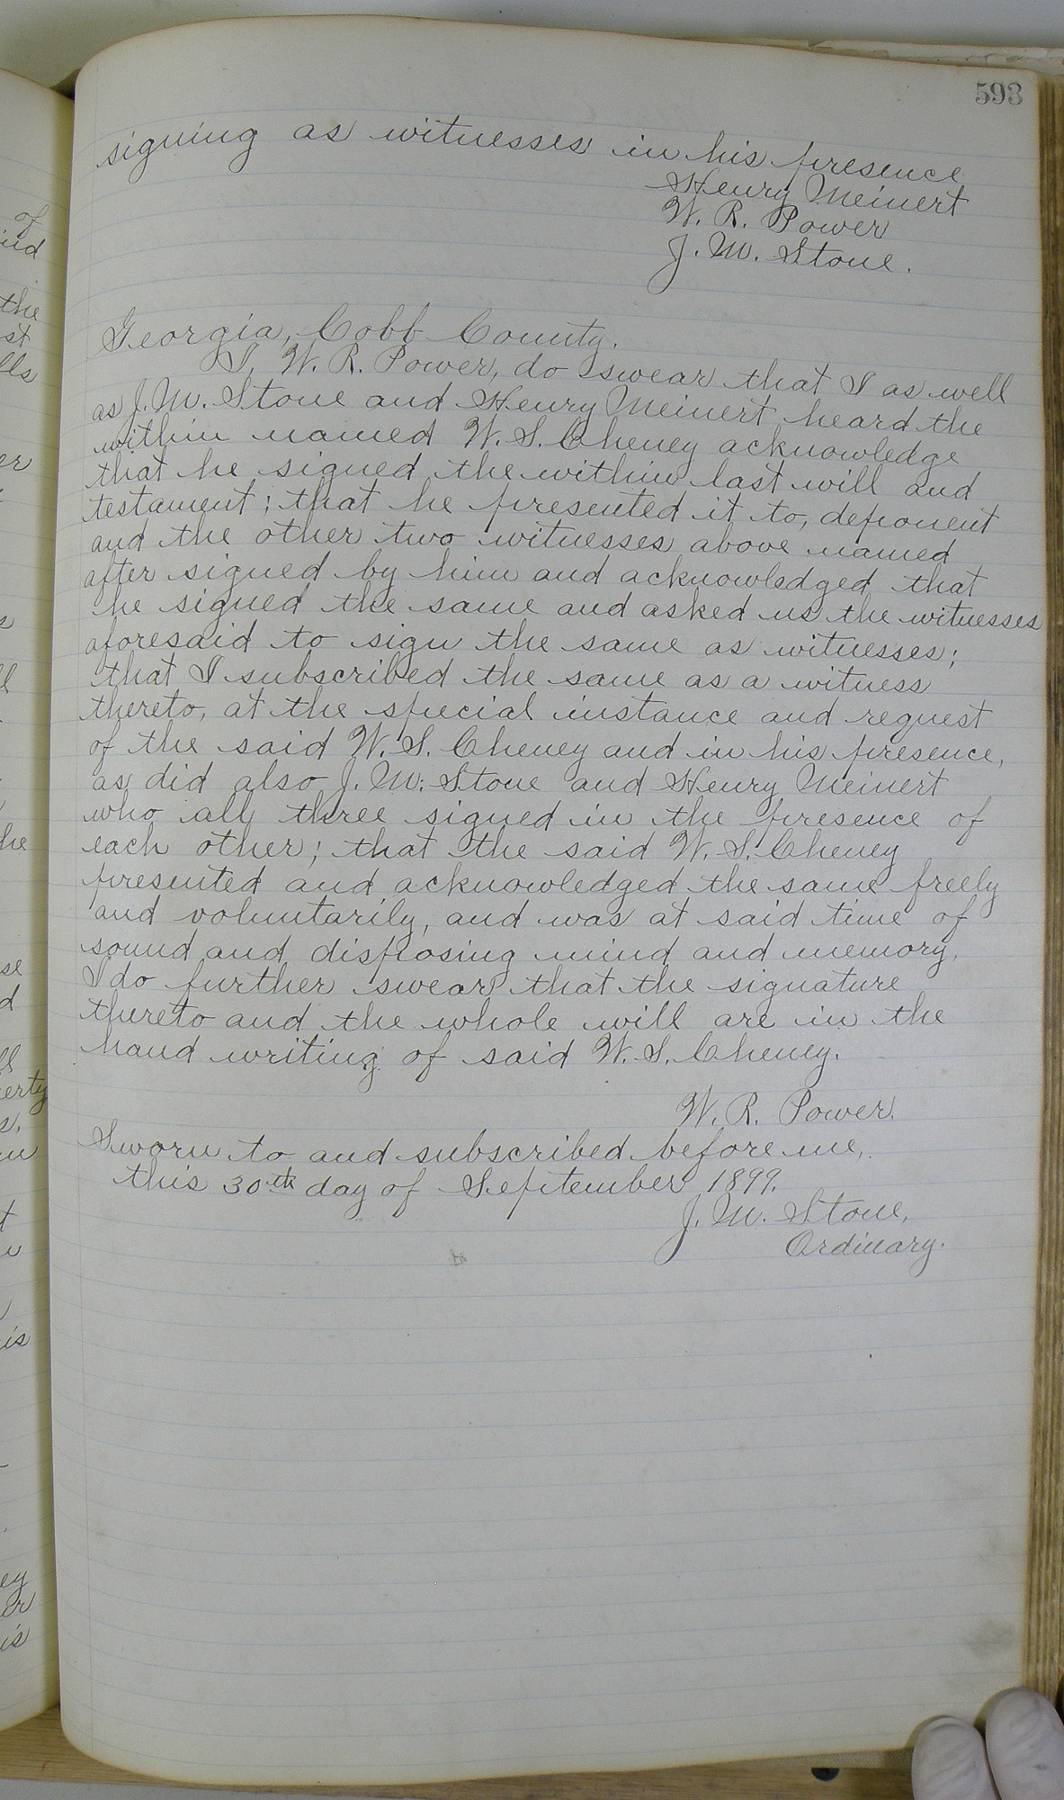 593
signing as witnesses in his presence
Henry Meinert
W. R. Power
J. M. Stone.
Georgia, Cobb County.
I, W. R. Power, do swear that I as well
as J. M. Stone and Henry Meinert heard the
within named W. S. Cheney acknowledge
that he signed the within last will and
testament; that he presented it to, deponent
and the other two witnesses above named
after signed by him and acknowledged that
he signed the same and asked us the witnesses
aforesaid to sign the same as witnesses;
that I subscribed the same as a witness
thereto, at the special instance and request
of the said W. S. Cheney and in his presence,
as did also J. M. Stone and Henry Meinert
who all three signed in the presence of
each other; that the said W. S. Cheney
presented and acknowledged the same freely
and voluntarily, and was at said time of
sound and disposing mind and memory,
I do further swear that the signature
thereto and the whole will are in the
hand writing of said W. S. Cheney.
W. R. Power.
Sworn to and subscribed before me,
this 30th day of September 1899.
J. M. Stone,
Ordinary.